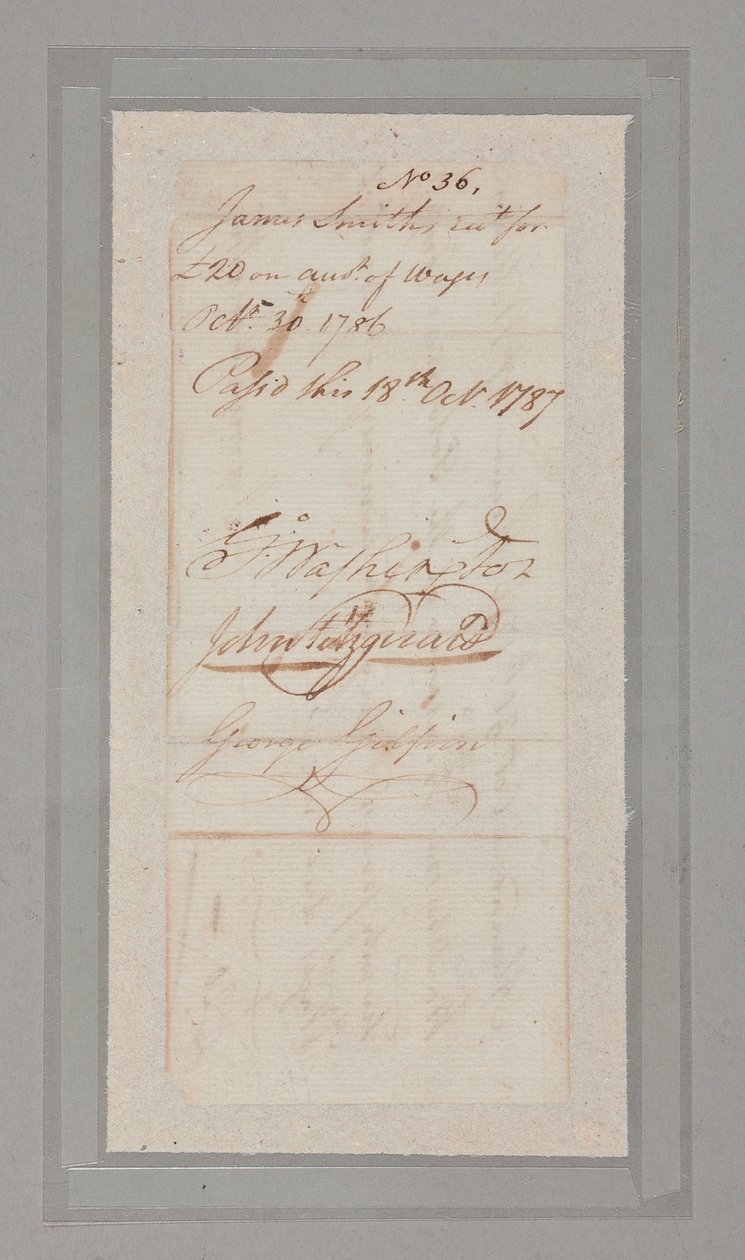 No 36,
James Smith's rect for
£20 on acct. of Wages
Octr. 30th 1786
Pass'd this 18th Oct. 1787
Go. Washington
John Fitzgerald
George Gilpin